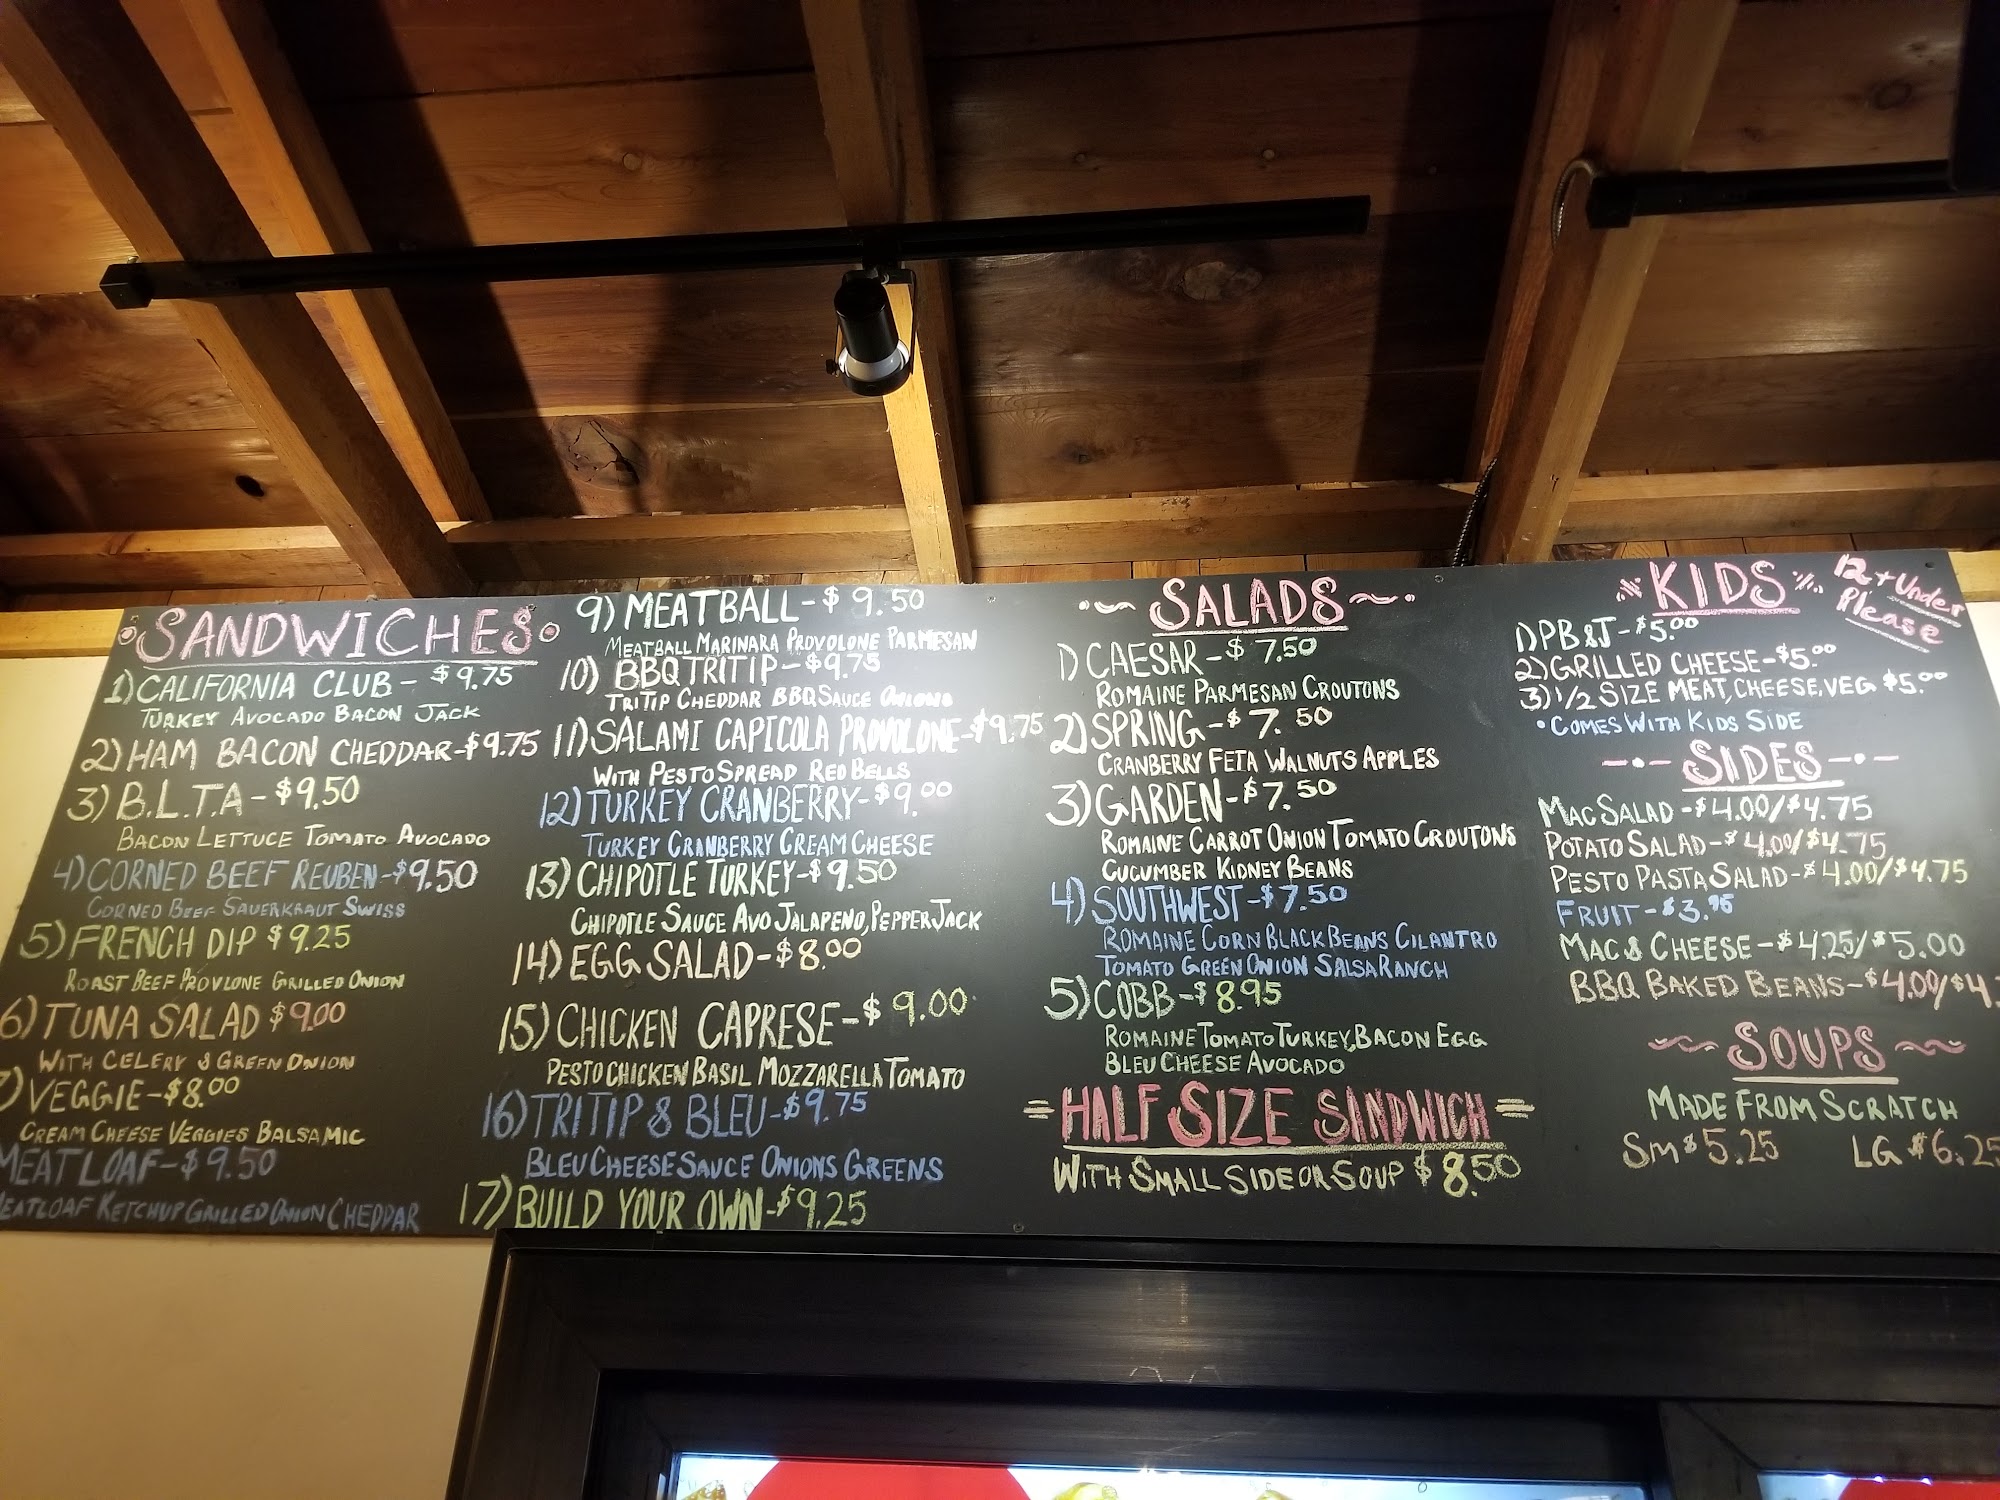 SANDWICHES
1) CALIFORNIA CLUB - $9.75
TURKEY AVOCADO BACON JACK
2) HAM BACON CHEDDAR - $9.75
3) B.L.T.A - $9.50
BACON LETTUCE TOMATO AVOCADO
4) CORNED BEEF REUBEN - $9.50
CORNED BEEF SAUERKRAUT SWISS
5) FRENCH DIP $9.25
ROAST BEEF PROVLONE GRILLED ONION
6) TUNA SALAD $9.00
WITH CELERY & GREEN ONION
7) VEGGIE - $8.00
CREAM CHEESE VEGGIES BALSAMIC
MEATLOAF - $9.50
MEATLOAF KETCHUP GRILLED ONION CHEDDAR
9) MEATBALL - $9.50
MEATBALL MARINARA PROVOLONE PARMESAN
10) BBQ TRITIP - $9.75
TRITIP CHEDDAR BBQ SAUCE ONIONS
11) SALAMI CAPICOLA PROVOLONE - $9.75
WITH PESTO SPREAD RED BELLS
12) TURKEY CRANBERRY - $9.00
TURKEY CRANBERRY CREAM CHEESE
13) CHIPOTLE TURKEY - $9.50
CHIPOTLE SAUCE AVO JALAPENO, PEPPER JACK
14) EGG SALAD - $8.00
15) CHICKEN CAPRESE - $9.00
PESTO CHICKEN BASIL MOZZARELLA TOMATO
16) TRITIP & BLEU - $9.75
BLEU CHEESE SAUCE ONIONS GREENS
17) BUILD YOUR OWN - $9.25
SALADS
1) CAESAR - $7.50
ROMAINE PARMESAN CROUTONS
2) SPRING - $7.50
CRANBERRY FETA WALNUTS APPLES
3) GARDEN - $7.50
ROMAINE CARROT ONION TOMATO CROUTONS
CUCUMBER KIDNEY BEANS
4) SOUTHWEST - $7.50
ROMAINE CORN BLACK BEANS CILANTRO
TOMATO GREEN ONION SALSA RANCH
5) COBB - $8.95
ROMAINE TOMATO TURKEY, BACON EGG
BLEU CHEESE AVOCADO
= HALF SIZE SANDWICH =
WITH SMALL SIDE OR SOUP $8.50
KIDS
12 + Under
Please
1) PB&J - $5.00
2) GRILLED CHEESE - $5.00
3) 1/2 SIZE MEAT, CHEESE, VEG $5.00
• COMES WITH KIDS SIDE
SIDES
MAC SALAD - $4.00/$4.75
POTATO SALAD - $4.00/$4.75
PESTO PASTA SALAD - $4.00/$4.75
FRUIT - $3.95
MAC & CHEESE - $4.25/$5.00
BBQ BAKED BEANS - $4.00/$4.
SOUPS
MADE FROM SCRATCH
SM $5.25 LG $6.25